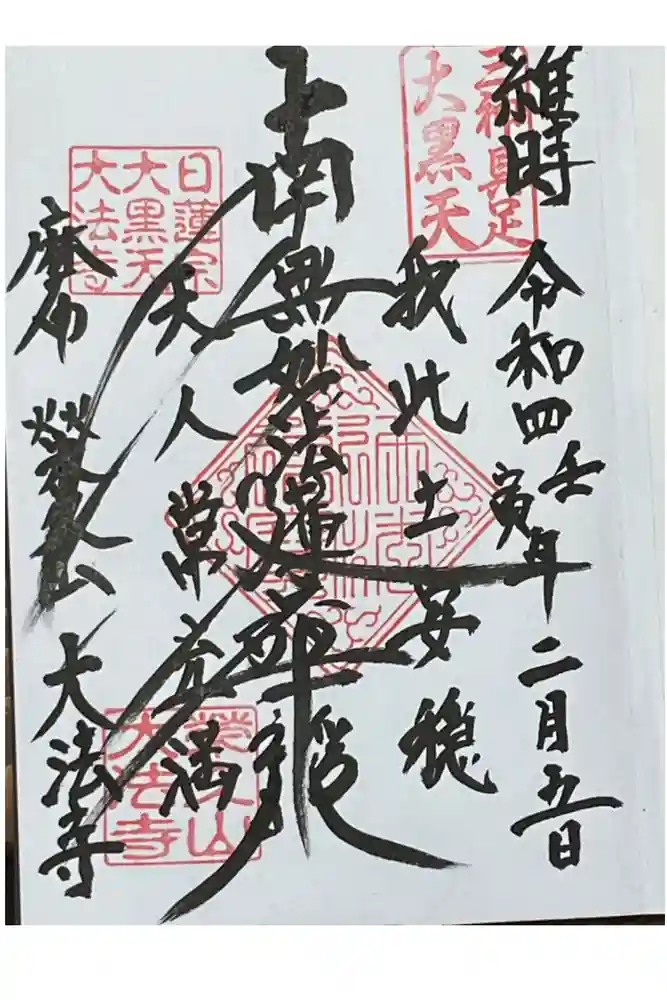 維時 令和四壬寅年 二月五日
三神具足
大黒天
我此土安穏
南無妙法蓮華経
天人常充満
日蓮宗
大黒天
大法寺
榮久山
大法寺
麻布 榮久山 大法寺